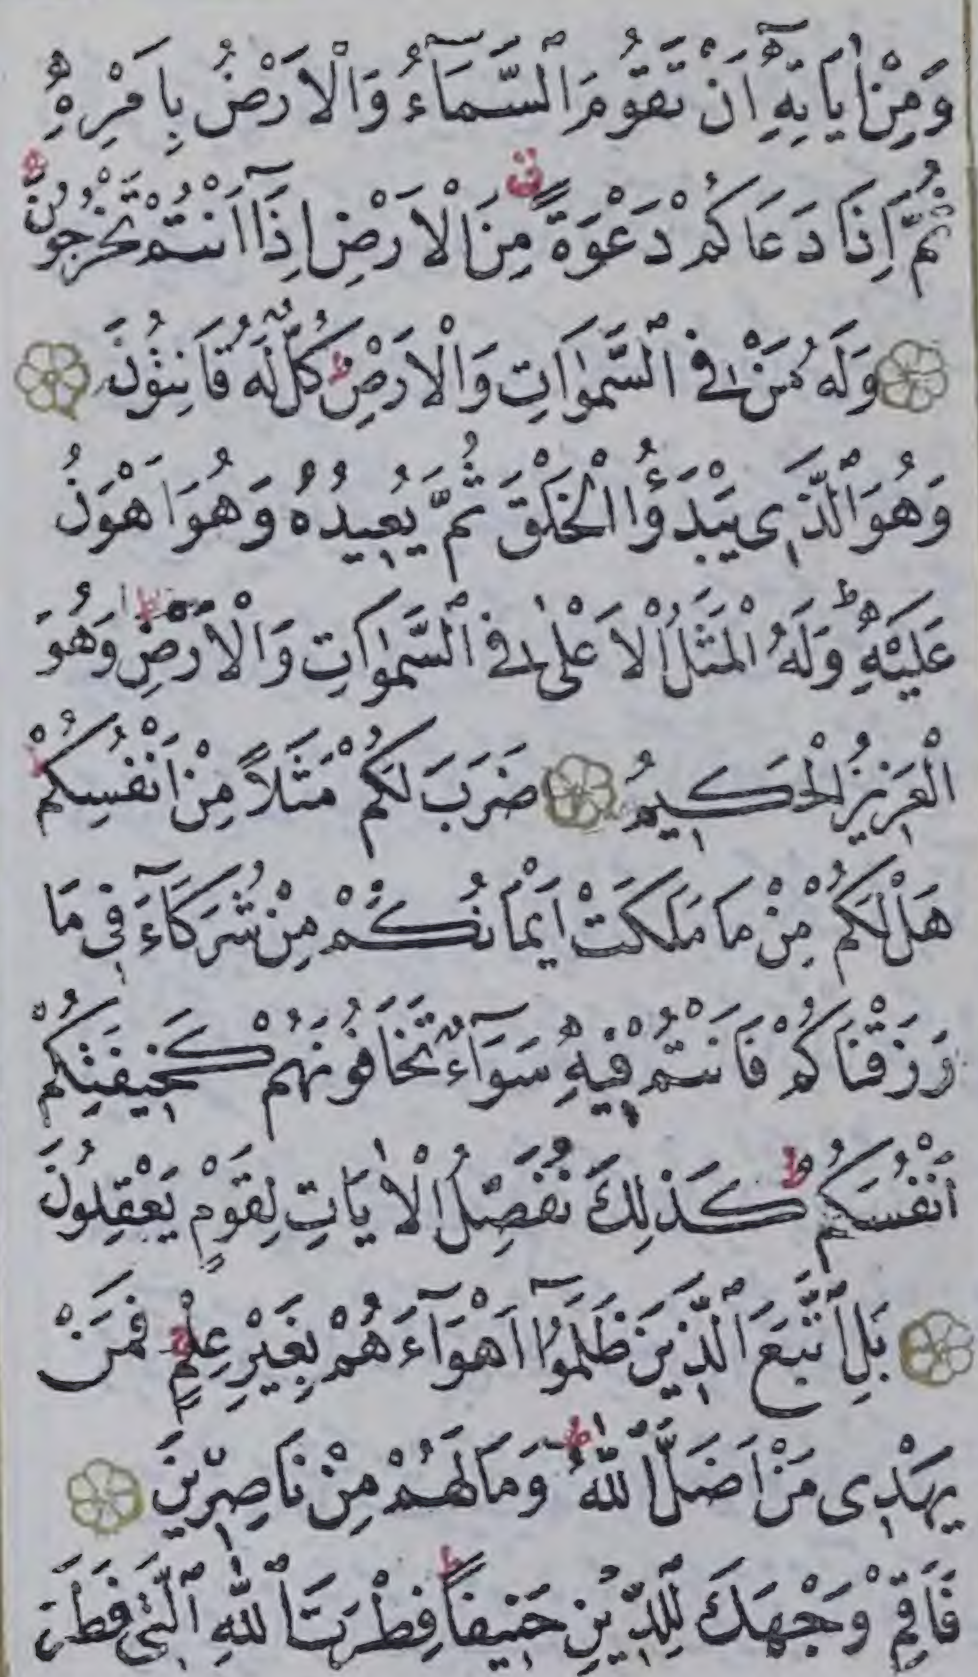 وَمِنْ اٰيَاتِهٖٓ اَنْ تَقُومَ السَّمَٓاءُ وَالْاَرْضُ بِاَمْرِهٖ
ثُمَّ اِذَا دَعَاكُمْ دَعْوَةً مِنَ الْاَرْضِ اِذَٓا اَنْتُمْ تَخْرُجُونَ
وَلَهُ مَنْ فِى السَّمٰوَاتِ وَالْاَرْضِ كُلٌّ لَهُ قَانِتُونَ
وَهُوَ الَّذِى يَبْدَؤُا الْخَلْقَ ثُمَّ يُعِيدُهُ وَهُوَ اَهْوَنُ
عَلَيْهِ وَلَهُ الْمَثَلُ الْاَعْلٰى فِى السَّمٰوَاتِ وَالْاَرْضِ وَهُوَ
الْعَزِيزُ الْحَكِيمُ ضَرَبَ لَكُمْ مَثَلًا مِنْ اَنْفُسِكُمْ
هَلْ لَكُمْ مِنْ مَا مَلَكَتْ اَيْمَانُكُمْ مِنْ شُرَكَٓاءَ فِى مَا
رَزَقْنَاكُمْ فَاَنْتُمْ فِيهِ سَوَٓاءٌ تَخَافُونَهُمْ كَخِيفَتِكُمْ
اَنْفُسَكُمْ كَذٰلِكَ نُفَصِّلُ الْاٰيَاتِ لِقَوْمٍ يَعْقِلُونَ
بَلِ اتَّبَعَ الَّذِينَ ظَلَمُٓوا اَهْوَٓاءَهُمْ بِغَيْرِ عِلْمٍ فَمَنْ
يَهْدِى مَنْ اَضَلَّ اللّٰهُ وَمَا لَهُمْ مِنْ نَاصِرِينَ
فَاَقِمْ وَجْهَكَ لِلدِّينِ حَنِيفًا فِطْرَتَ اللّٰهِ الَّتِى فَطَرَ